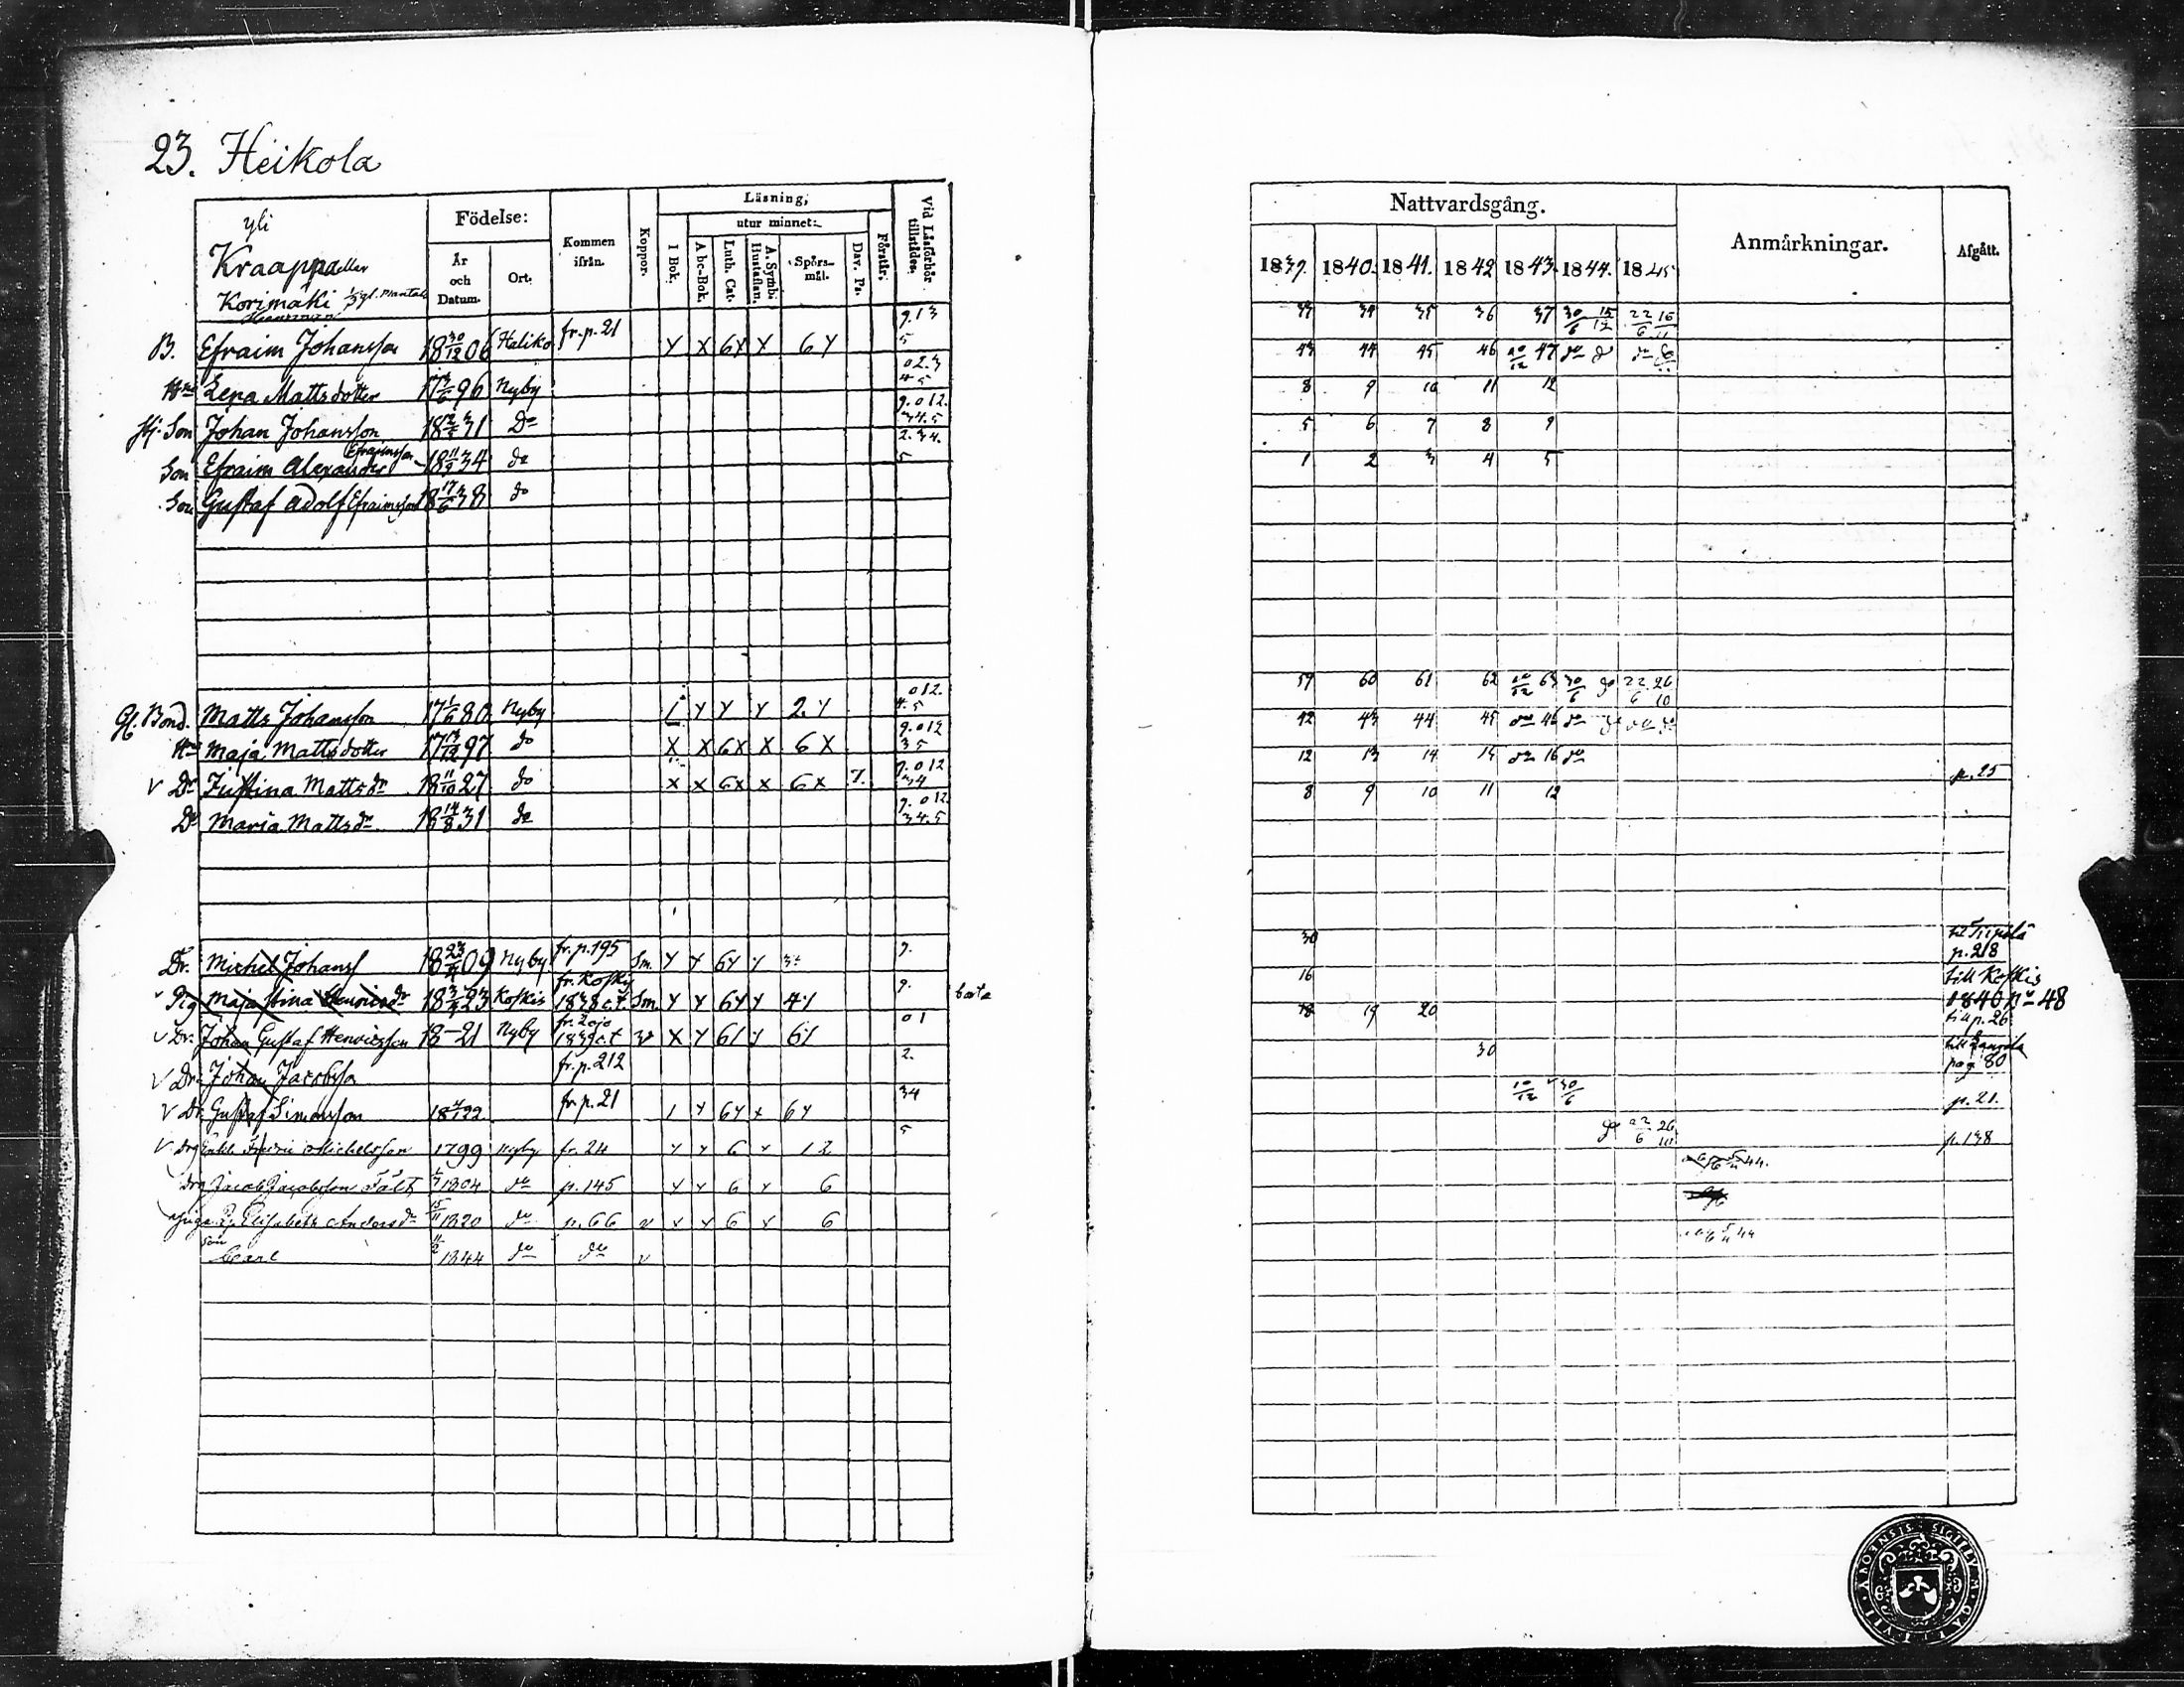 23. Heikola
yli
Kraappa eller
Korimäki 1/3 gl. Mantal
Födelse:
År och Datum.
Ort.
Kommen ifrån.
Koppor.
Läsning,
utur minnet:
I Bok.
Abc-Bok.
Luth. Cat.
A. Symb. Hustaflan.
Spörs-mål.
Dav. Ps.
Förstår.
Vid Läsförhör tillstädes.
B. Efraim Johansson 18 30/12 06 Haliko fr. p. 21 Y X 6X X 6Y 9.13 5
Hu Lena Mattsdotter 96 Nyby 0 2.3 4 5
Son Johan Johansson 31 Do 9.012. 34.5
Son Efraim Alexander Efraimsson 18 11/9 34 do 2.34. 5
Son Gustaf Adolf Efraimsson 18 17/6 38 do
Gl. Bond. Matts Johansson 17 1/6 80 Nyby Y Y Y 2.Y 012. 4.5
Hu Maja Mattsdotter 17 13/12 97 do X X 6X X 6X 9.012 35
v Dr Justina Mattsdr 18 11/10 27 do X X 6X X 6X 7. 9.012 34
Dr Maria Mattsdr 18 14/8 31 do 9.012. 34.5
Dr. Michel Johanss 09 Nyby fr. p. 195 Sm. Y Y 6Y Y 9.
Pig Maja Stina Henricsdr 23 Koskis fr. Koskis 1838 c.t. Sm. Y Y 6Y Y 4Y 9. borta
v Dr. Johan Gustaf Henricsson 18–21 Nyby 1839 c.t. v X Y 6/ Y 6/ 01
v Dr. Johan Jacobsson fr. p. 212 2.
v Dr Gustaf Simonsson 22 fr. p. 21 1 Y 6Y x 6Y 34
v Drg Enkl. Fredric Michelsson 1799 Nyby fr. 24 Y Y 6 Y 12 5
Drg Jacob Jacobsson Fält 1804 do p. 145 Y Y 6 Y 6
Elisabeth Andersdr 15/11 1820 do p. 66 v Y Y 6 Y 6
son Carl 11/2 1844 do do v
Nattvardsgång.
Anmärkningar.
Afgått.
1839. 1840. 1841. 1842 1843. 1844. 1845
33 34 35 36 37 30/6 15/12 22/6 16/11
43 44 45 46 10/12 47 do do do do
8 9 10 11 12
5 6 7 8 9
1 2 3 4 5
59 60 61 62 10/12 63 30/6 do 22/6 26/10
42 43 44 45 do 46 do do do do
12 13 14 15 do 16 do p. 25
8 9 10 11 12
30 p. 218
16 till Koskis 1840 No 48
18 19 20 till p. 26
30 pag. 80
10/12 30/6 p. 21.
do 22/6 26/10 p. 138
SIGILLVM